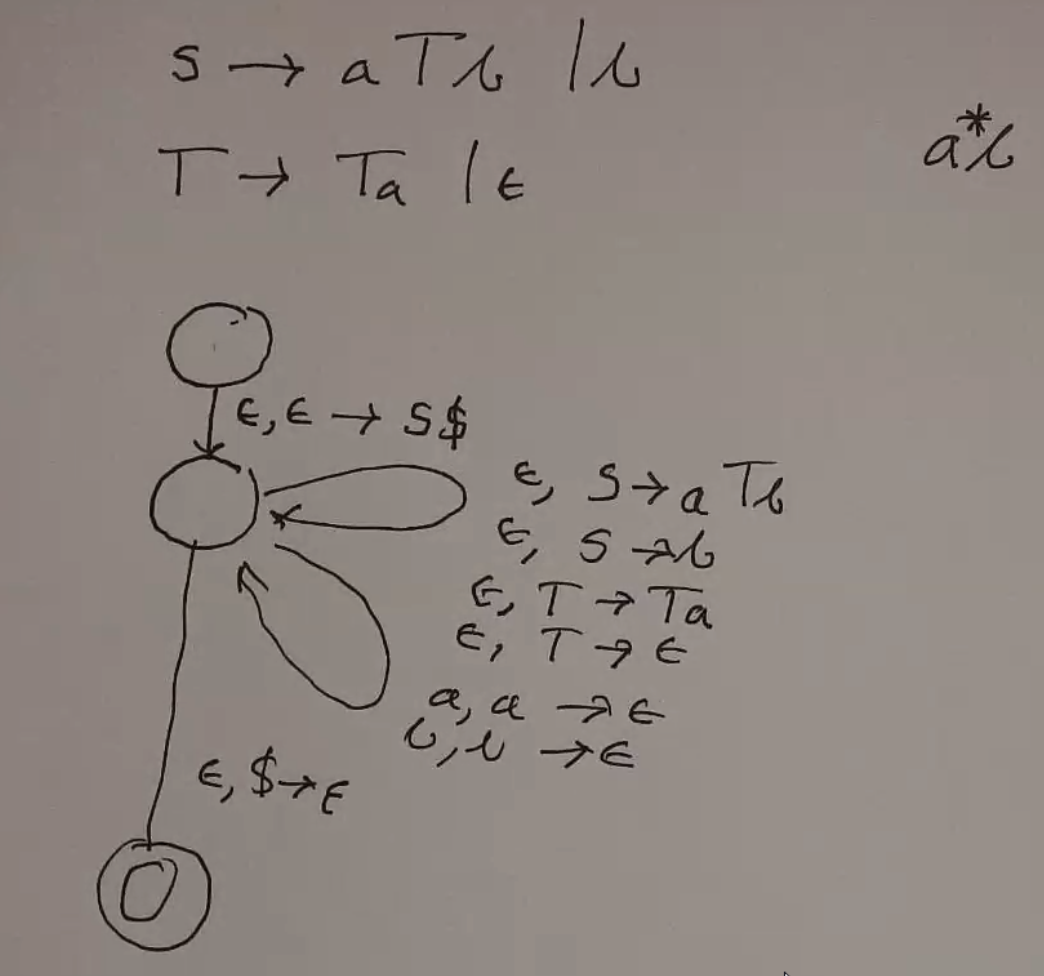 S → aTb | b
a*b
T → Ta | ϵ
ϵ, ϵ → S$
ϵ, S → aTb
ϵ, S → b
ϵ, T → Ta
ϵ, T → ϵ
a, a → ϵ
b, b → ϵ
ϵ, $ → ϵ